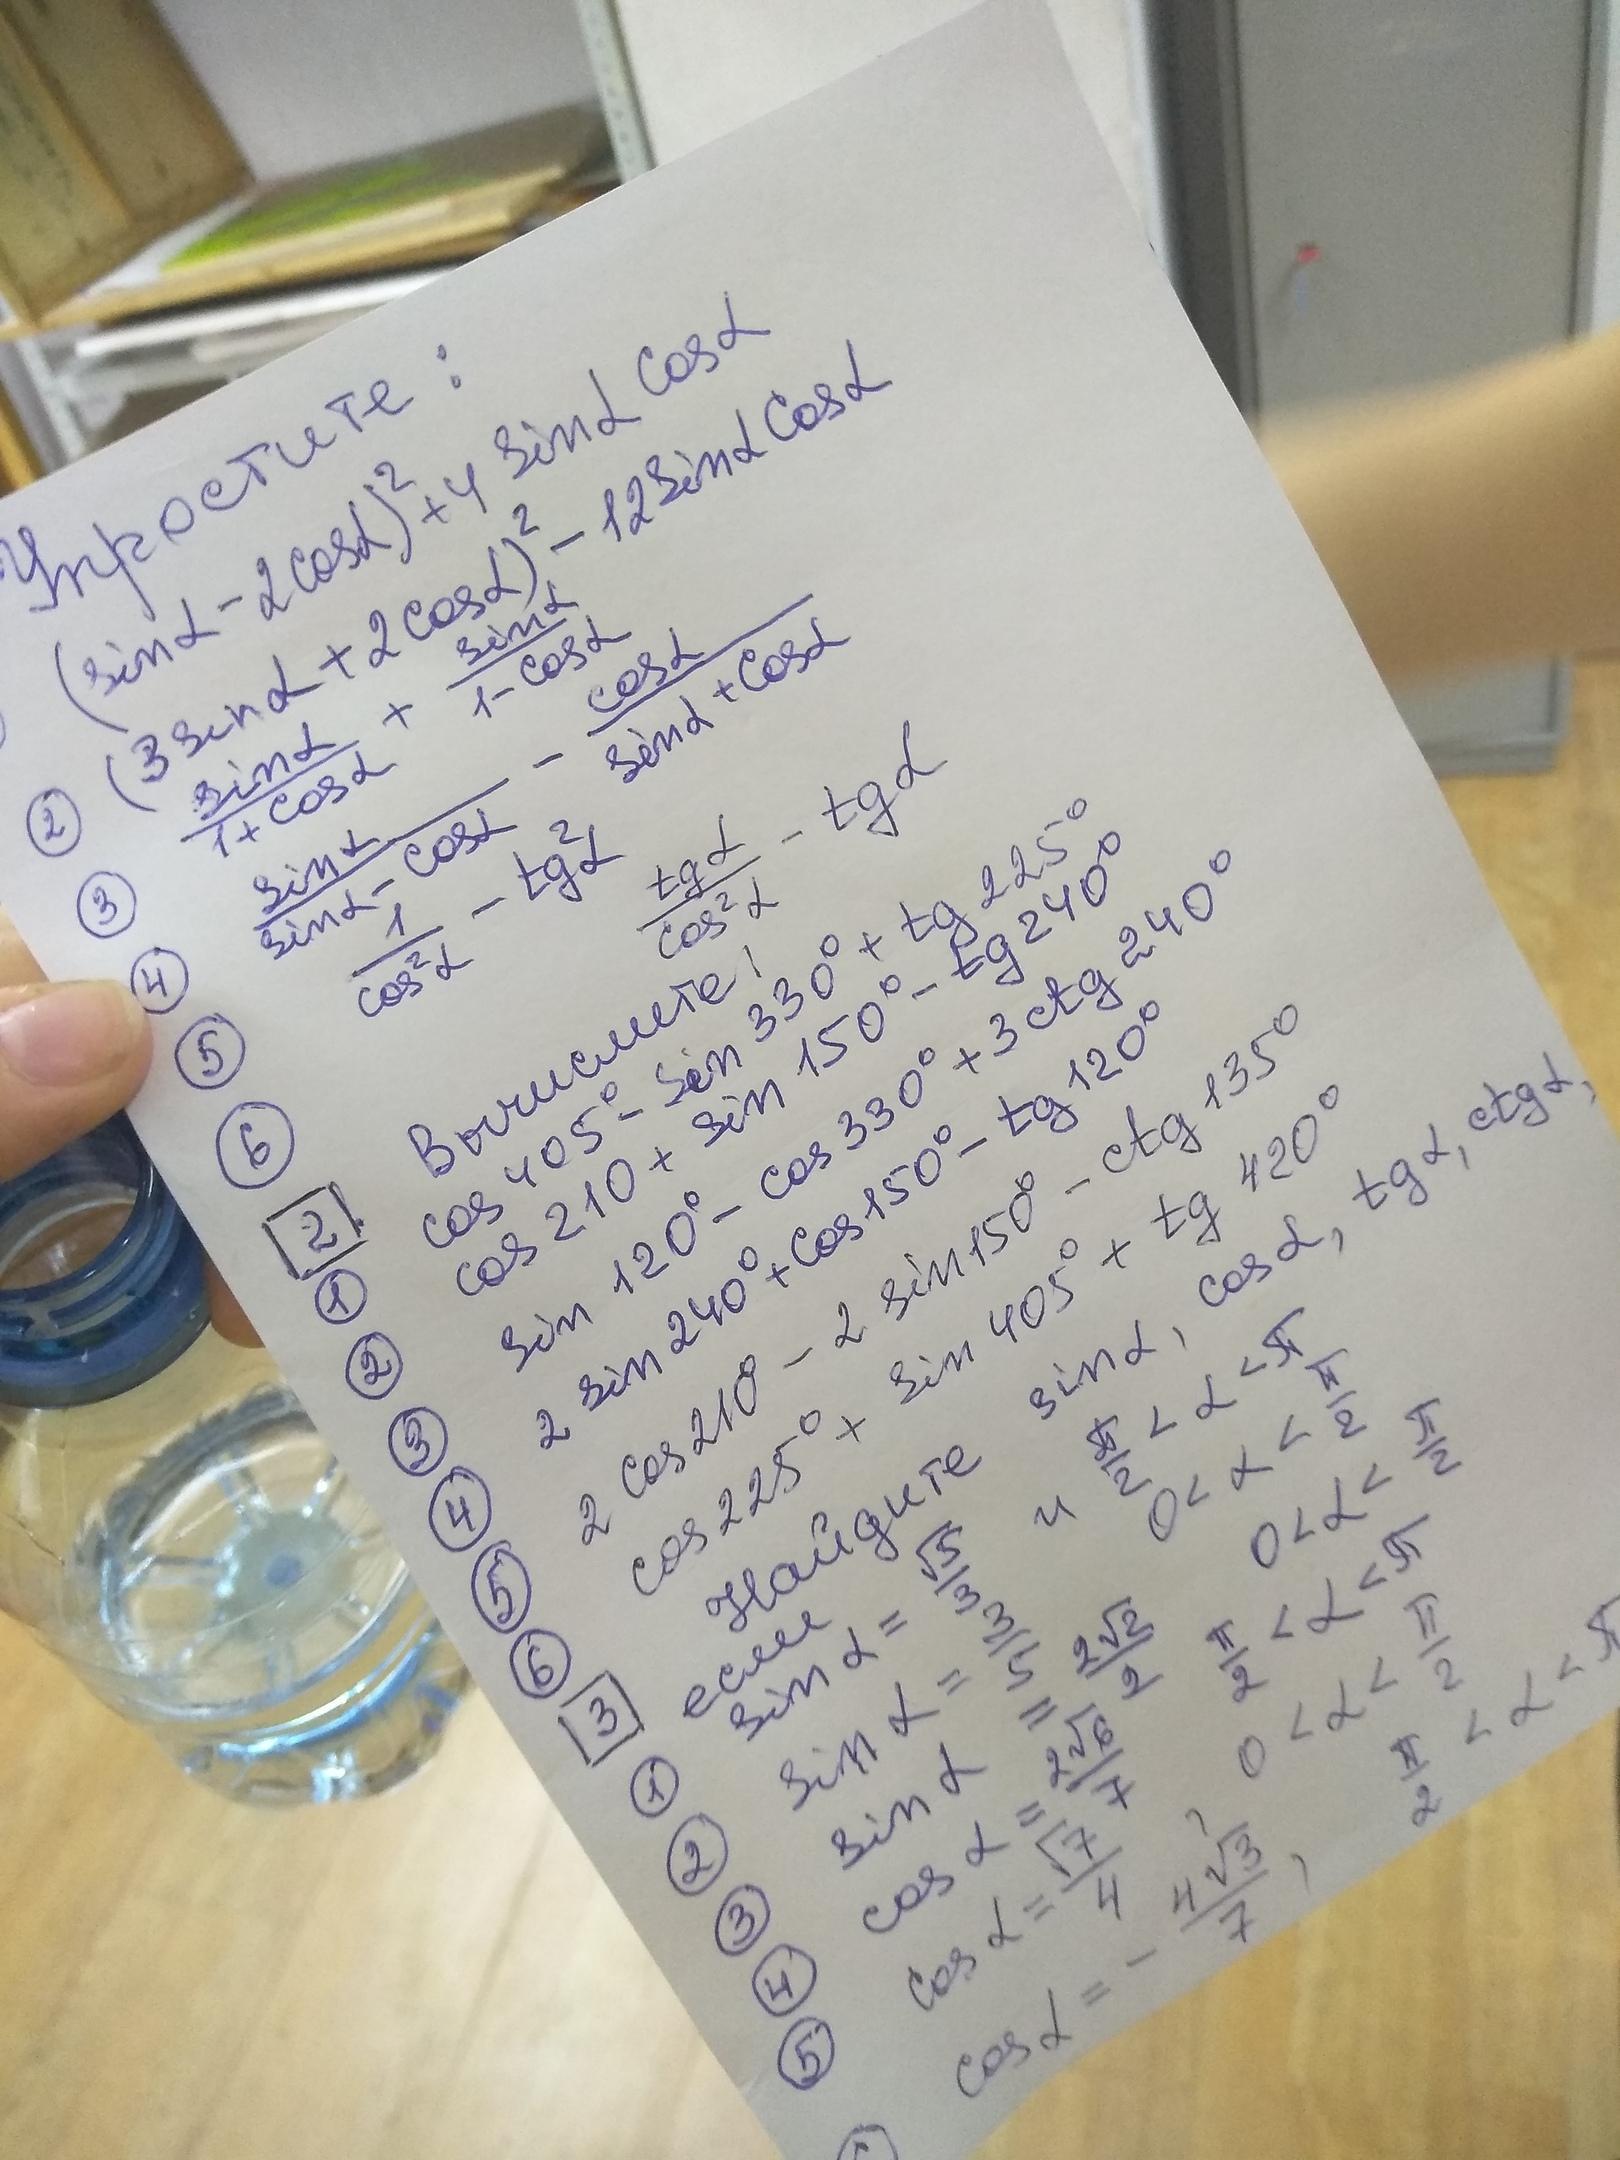 Упростите:
(sinα - 2cosα)² + 4 sinα cosα
② (3sinα + 2cosα)² - 12sinα cosα
③ sinα/(1+cosα) + sinα/(1-cosα)
④ sinα/(sinα-cosα) - cosα/(sinα+cosα)
⑤ 1/cos²α - tg²α
⑥ tgα/cos²α - tgα
2. Вычислите:
① cos 405° - sin 330° + tg 225°
② cos 210 + sin 150° - tg 240°
③ sin 120° - cos 330° + 3 ctg 240°
④ 2 sin 240° + cos 150° - tg 120°
⑤ 2 cos 210° - 2 sin 150° - ctg 135°
⑥ cos 225° + sin 405° + tg 420°
3 Найдите sinα, cosα, tgα, ctgα,
если
① sin α = √5/3 и π/2 < α < π
② sin α = 3/5 0 < α < π/2
③ sin α = 2√2/2 0 < α < π/2
④ cos α = 2√6/7 π/2 < α < π
⑤ cos α = √7/4, 0 < α < π/2
cos α = - 4√3/7, π/2 < α < π